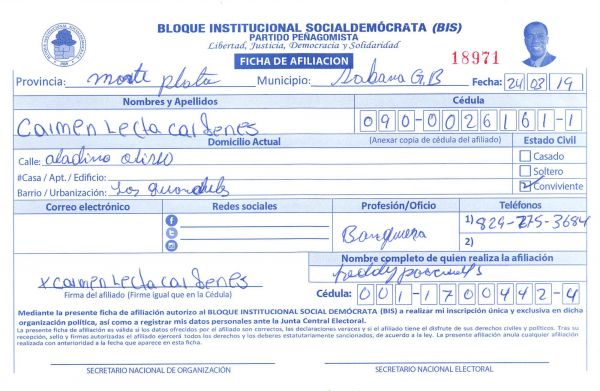 BLOQUE INSTITUCIONAL SOCIALDEMÓCRATA (BIS)
PARTIDO PEÑAGOMISTA
Libertad, Justicia, Democracia y Solidaridad
FICHA DE AFILIACION
18971
Provincia: monte plata Municipio: Sabana G.B Fecha: 24 03 19
Nombres y Apellidos Cédula
Carmen Lecta Cardenes 090-0026161-1
Domicilio Actual (Anexar copia de cédula del afiliado) Estado Civil
Calle: aladino Casado
#Casa / Apt. / Edificio: Soltero
Barrio / Urbanización: Los Conviviente
Correo electrónico Redes sociales Profesión/Oficio Teléfonos
1) 829-775-3684
Banquera 2)
Nombre completo de quien realiza la afiliación
x Carmen Lecta Cardenes freddy
Firma del afiliado (Firme igual que en la Cédula) Cédula: 001-1700442-4
Mediante la presente ficha de afiliación autorizo al BLOQUE INSTITUCIONAL SOCIAL DEMÓCRATA (BIS) a realizar mi inscripción única y exclusiva en dicha
organización política, así como a registrar mis datos personales ante la Junta Central Electoral.
La presente ficha de afiliación es valida si los datos ofrecidos por el afiliado son correctos, las declaraciones veraces y si el afiliado tiene el disfrute de sus derechos civiles y políticos. Tras su
recepción, sello y firmas autorizadas el afiliado ejercerá todos los derechos y los deberes estatutariamente sancionados, de acuerdo a la ley. La presente afiliación anula cualquier afiliación
realizada con anterioridad a la fecha que aparece en esta ficha.
SECRETARIO NACIONAL DE ORGANIZACIÓN SECRETARIO NACIONAL ELECTORAL